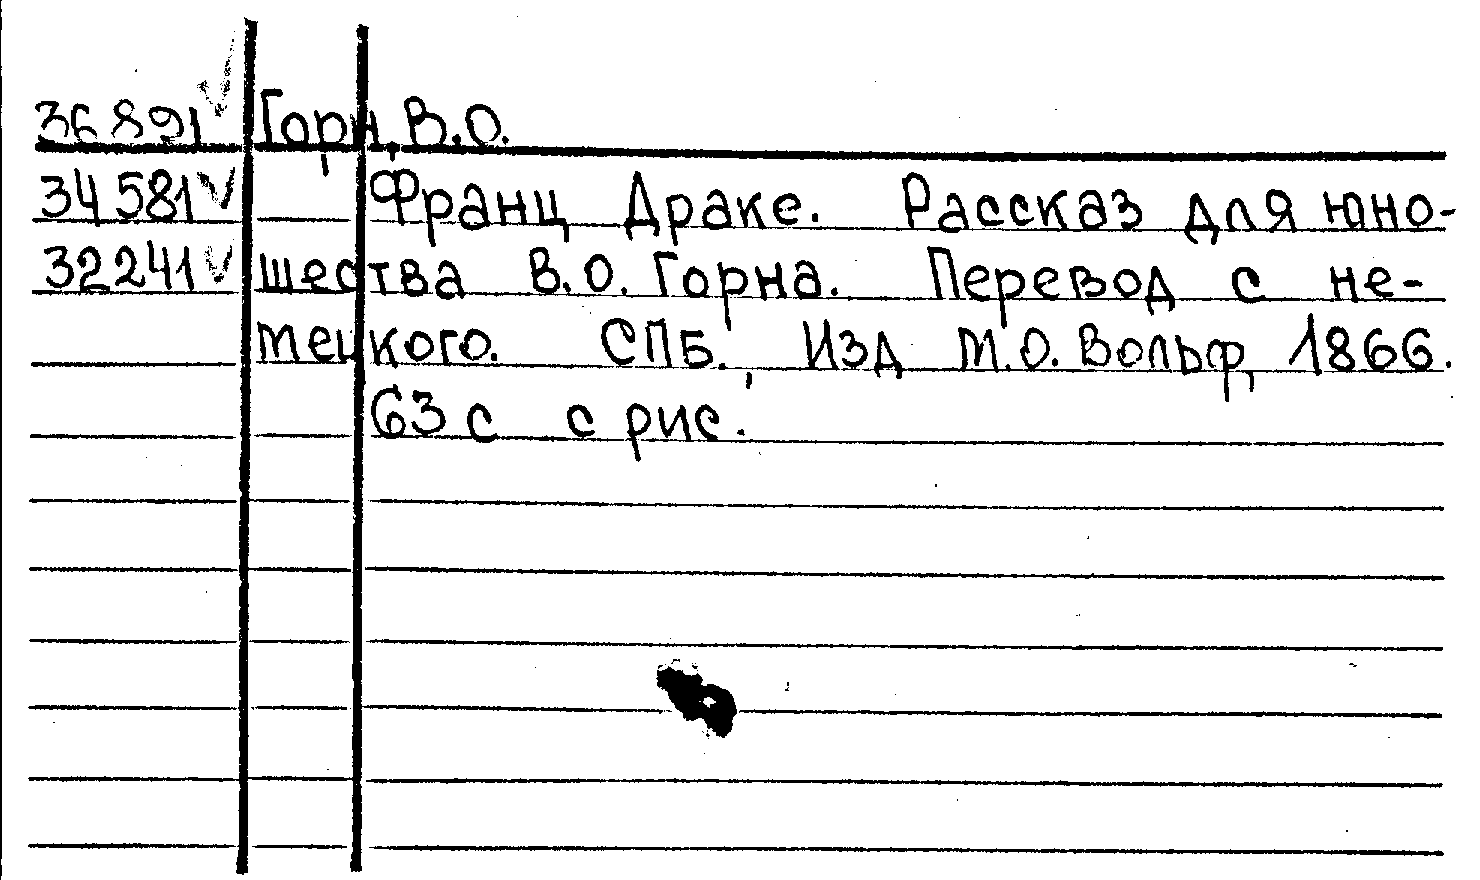 36891 Горн, В.О.
34581 Франц Драке. Рассказ для юно-
32241 шества В.О. Горна. Перевод с не-
мецкого. СПБ., Изд М.О. Вольф, 1866.
63 с с рис.